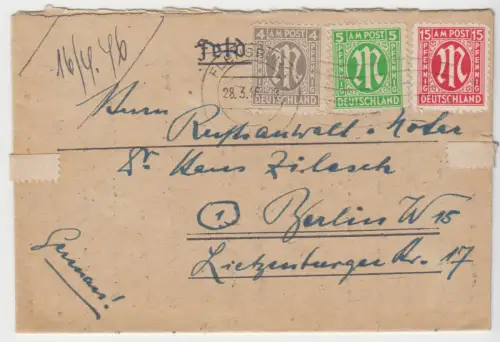 16/4.46
Feld
4 AM POST 4
PFENNIG PFENNIG
DEUTSCHLAND
5 AM POST 5
PFENNIG PFENNIG
DEUTSCHLAND
15 AM POST 15
PFENNIG PFENNIG
DEUTSCHLAND
28.3.46
Herrn
Rechtsanwalt u. Notar
Dr. Hans Zilesch
1 Berlin W 15
Lietzenburger Str. 17
German!